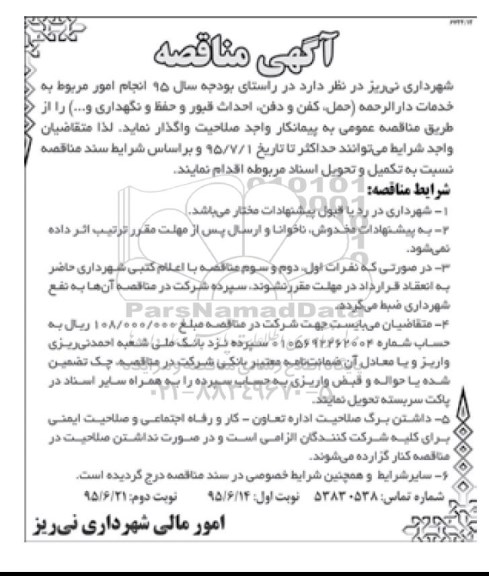 ۶۷۴۴/۱۴
آگهی مناقصه
شهرداری نی‌ریز در نظر دارد در راستای بودجه سال ۹۵ انجام امور مربوط به
خدمات دارالرحمه (حمل، کفن و دفن، احداث قبور و حفظ و نگهداری و...) را از
طریق مناقصه عمومی به پیمانکار واجد صلاحیت واگذار نماید. لذا متقاضیان
واجد شرایط می‌توانند حداکثر تا تاریخ ۹۵/۷/۱ و براساس شرایط سند مناقصه
نسبت به تکمیل و تحویل اسناد مربوطه اقدام نمایند.
شرایط مناقصه:
۱- شهرداری در رد یا قبول پیشنهادات مختار می‌باشد.
۲- به پیشنهادات مخدوش، ناخوانا و ارسال پس از مهلت مقرر ترتیب اثر داده
نمی‌شود.
۳- در صورتی که نفرات اول، دوم و سوم مناقصه با اعلام کتبی شهرداری حاضر
به انعقاد قرارداد در مهلت مقرر نشوند، سپرده شرکت در مناقصه آن‌ها به نفع
شهرداری ضبط می‌گردد.
ParsNamadData
۴- متقاضیان می‌بایست جهت شرکت در مناقصه مبلغ ۱۰۸/۰۰۰/۰۰۰ ریال به
حساب شماره ۰۱۰۵۶۹۲۲۶۲۰۰۴ سپرده نزد بانک ملی شعبه احمدنی‌ریزی
واریز و یا معادل آن ضمانت‌نامه معتبر بانکی شرکت در مناقصه، چک تضمین
شده یا حواله و قبض واریزی به حساب سپرده را به همراه سایر اسناد در
پاکت سربسته تحویل نمایند.
۰۲۱-۸۸۳۴۹۶۷۰-۸
۵- داشتن برگ صلاحیت اداره تعاون - کار و رفاه اجتماعی و صلاحیت ایمنی
برای کلیه شرکت کنندگان الزامی است و در صورت نداشتن صلاحیت در
مناقصه کنار گزارده می‌شوند.
۶- سایر شرایط و همچنین شرایط خصوصی در سند مناقصه درج گردیده است.
شماره تماس: ۵۳۸۳۰۵۳۸ نوبت اول: ۹۵/۶/۱۴ نوبت دوم: ۹۵/۶/۲۱
امور مالی شهرداری نی‌ریز